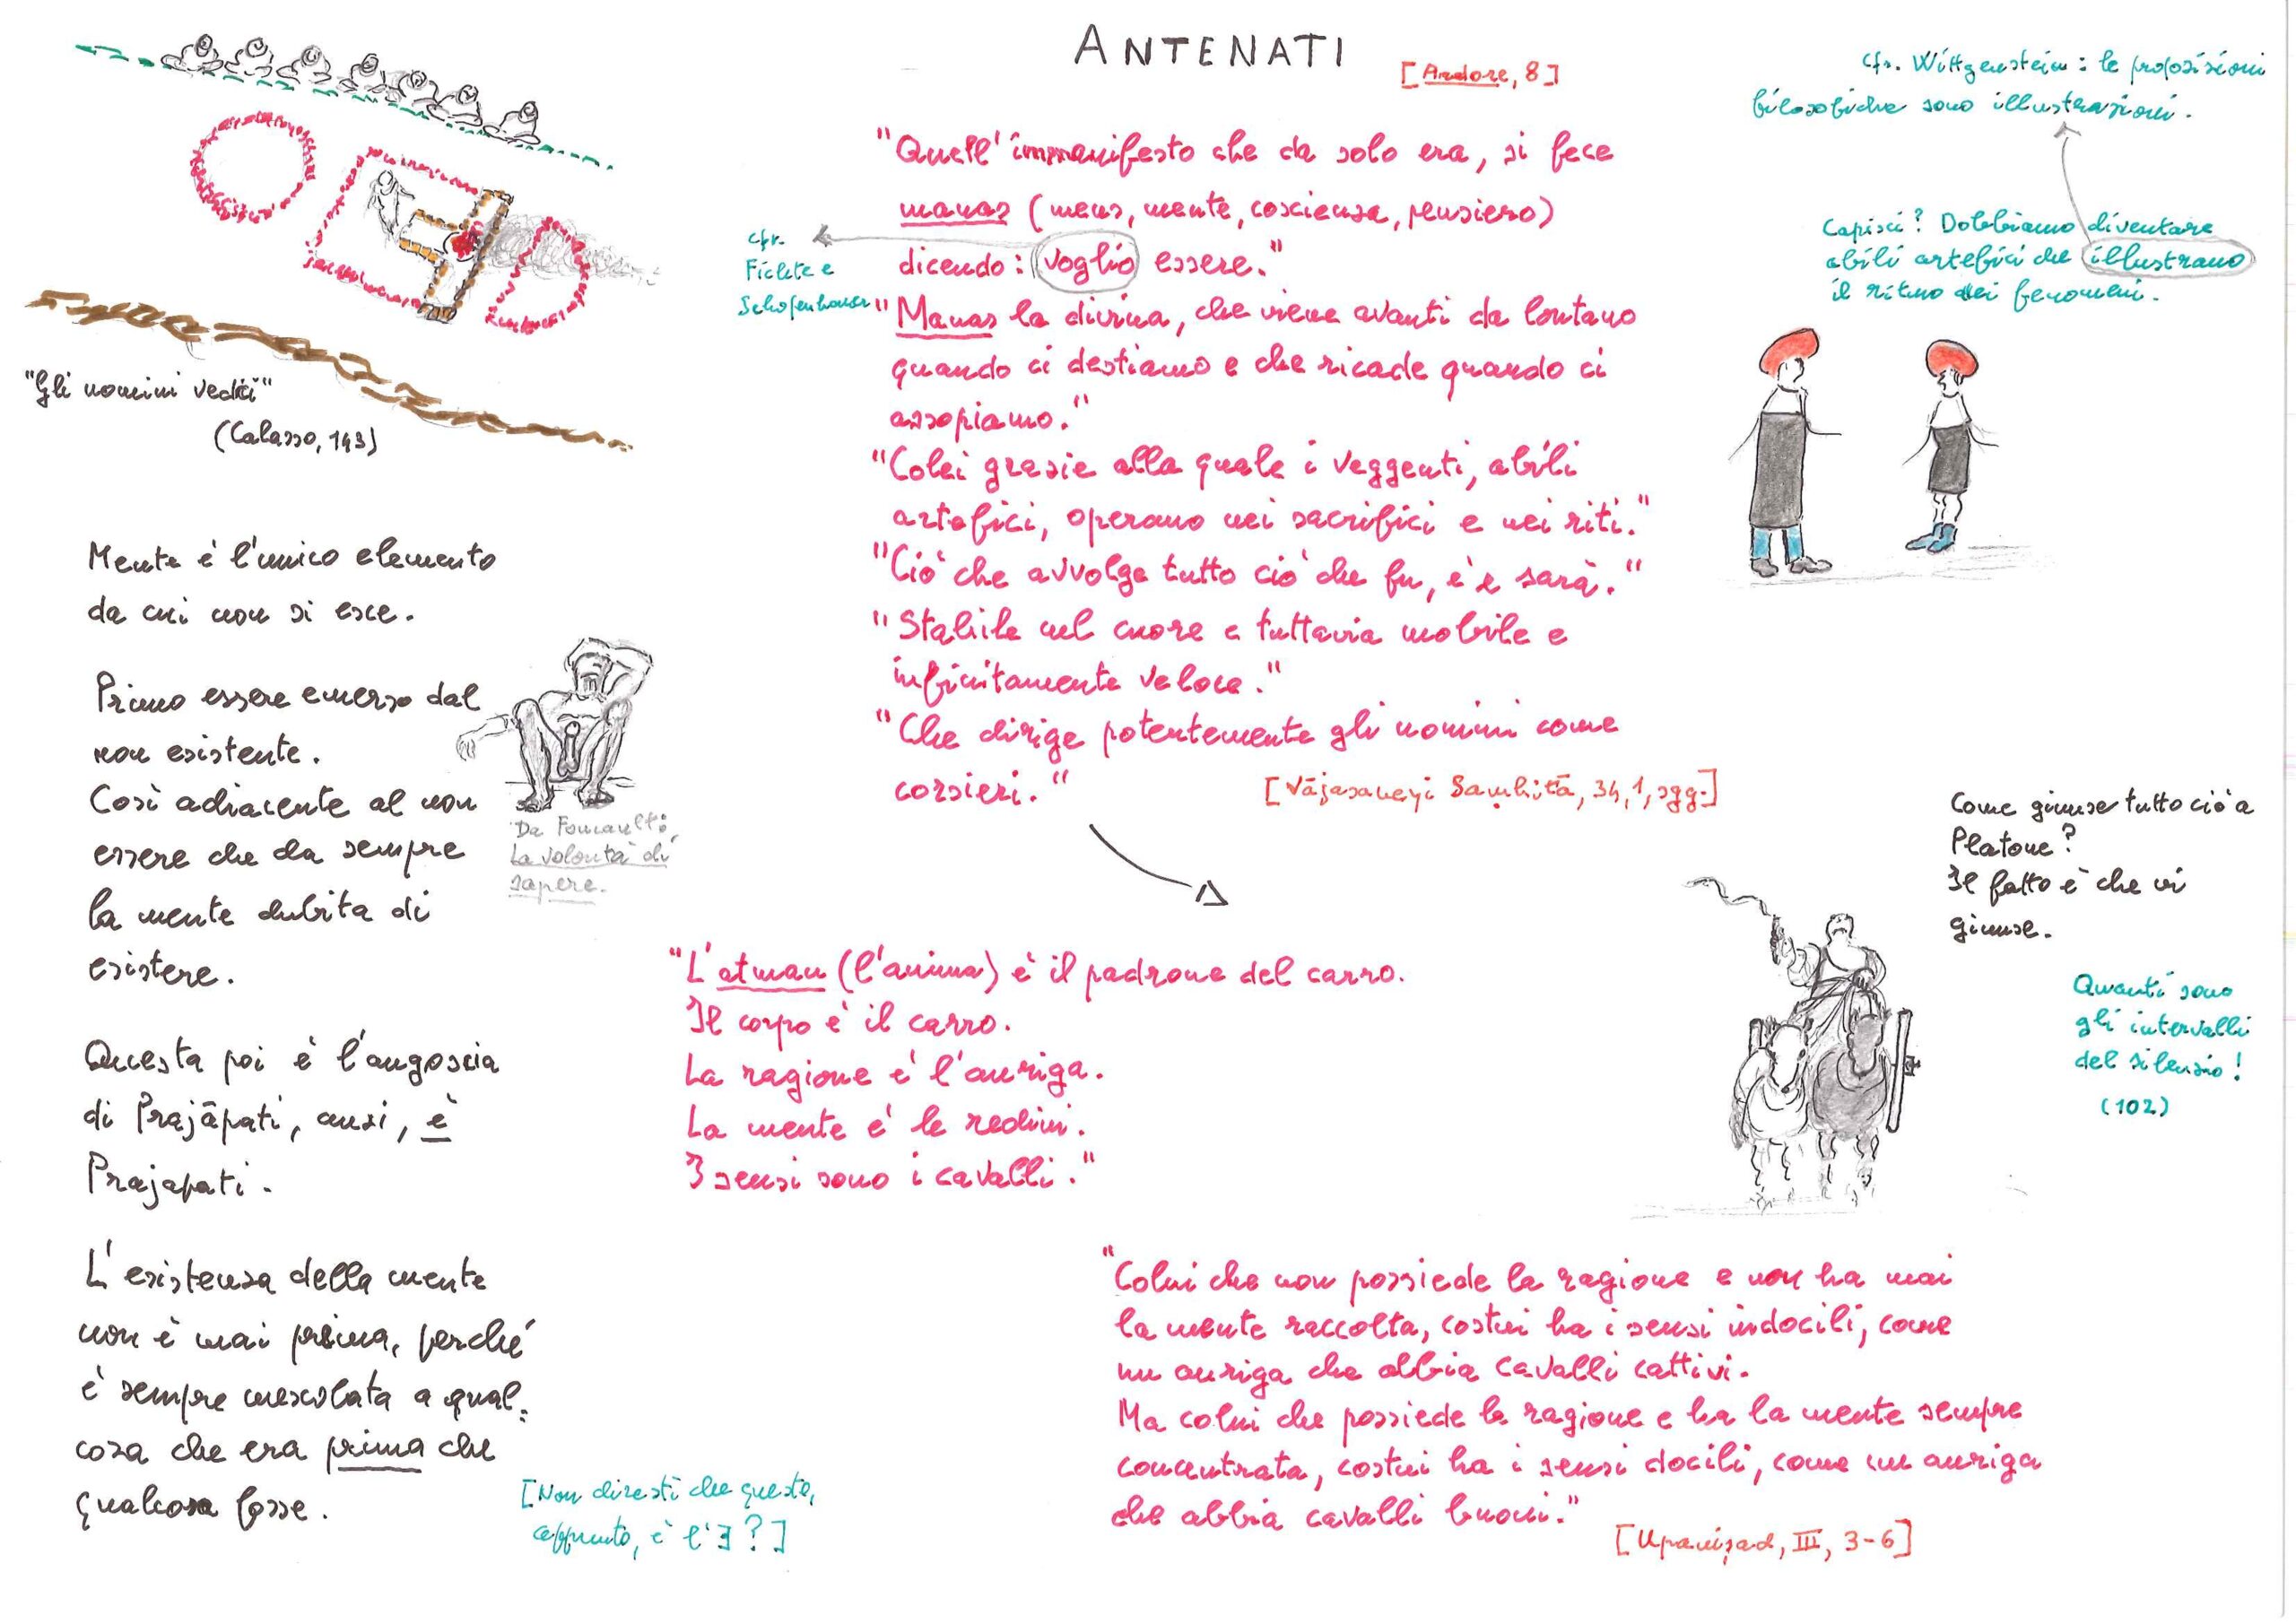 ANTENATI
[Ardore, 8]
cfr. Wittgenstein: le proposizioni
filosofiche sono illustrazioni.
Capisci? Dobbiamo diventare
abili artefici che illustrano
il ritmo dei fenomeni.
"Gli uomini vedici"
(Calasso, 143)
"Quell'immanifesto che da solo era, si fece
manas (mens, mente, coscienza, pensiero)
dicendo: voglio essere."
cfr.
Fichte e
Schopenhauer
"Manas la divina, che viene avanti da lontano
quando ci destiamo e che ricade quando ci
assopiamo."
"Colei grazie alla quale i veggenti, abili
artefici, operano nei sacrifici e nei riti."
"Ciò che avvolge tutto ciò che fu, è e sarà."
"Stabile nel cuore e tuttavia mobile e
infinitamente veloce."
"Che dirige potentemente gli uomini come
corsieri."
[Vājasaneyi Saṃhitā, 34, 1, sgg.]
Mente è l'unico elemento
da cui non si esce.
Primo essere emerso dal
non esistente.
Così adiacente al non
essere che da sempre
la mente dubita di
esistere.
Da Foucault,
La volontà di
sapere.
Questa poi è l'angoscia
di Prajāpati, anzi, è
Prajapati.
L'esistenza della mente
non è mai prima, perché
è sempre mescolata a qual=
cosa che era prima che
qualcosa fosse.
[Non diresti che questo,
appunto, è l'∃?]
"L'atman (l'anima) è il padrone del carro.
Il corpo è il carro.
La ragione è l'auriga.
La mente è le redini.
I sensi sono i cavalli."
Come giunse tutto ciò a
Platone?
Il fatto è che vi
giunse.
Quanti sono
gli intervalli
del silenzio!
(102)
"Colui che non possiede la ragione e non ha mai
la mente raccolta, costui ha i sensi indocili, come
un auriga che abbia cavalli cattivi.
Ma colui che possiede la ragione e ha la mente sempre
concentrata, costui ha i sensi docili, come un auriga
che abbia cavalli buoni."
[Upaniṣad, III, 3-6]